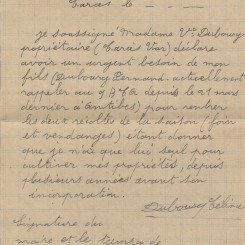 Carcès le _ . _ . _
je soussigné Madame Vve Dubourg
propriétaire (Carcès Var) déclare
avoir un urgent besoin de mon
fils (Dubourg Fernand. actuellement
rappeler au 9 B.C.A depuis le 21 mars
dernier à Antibes) pour rentrer
les deux récolte de la saison (foin
et vendanges) étant donner
que je n'ai que lui seul pour
cultiver mes propriétés, depuis
plusieurs années avant son
incorporation.
Dubourg
Signature du
maire et le timbre de